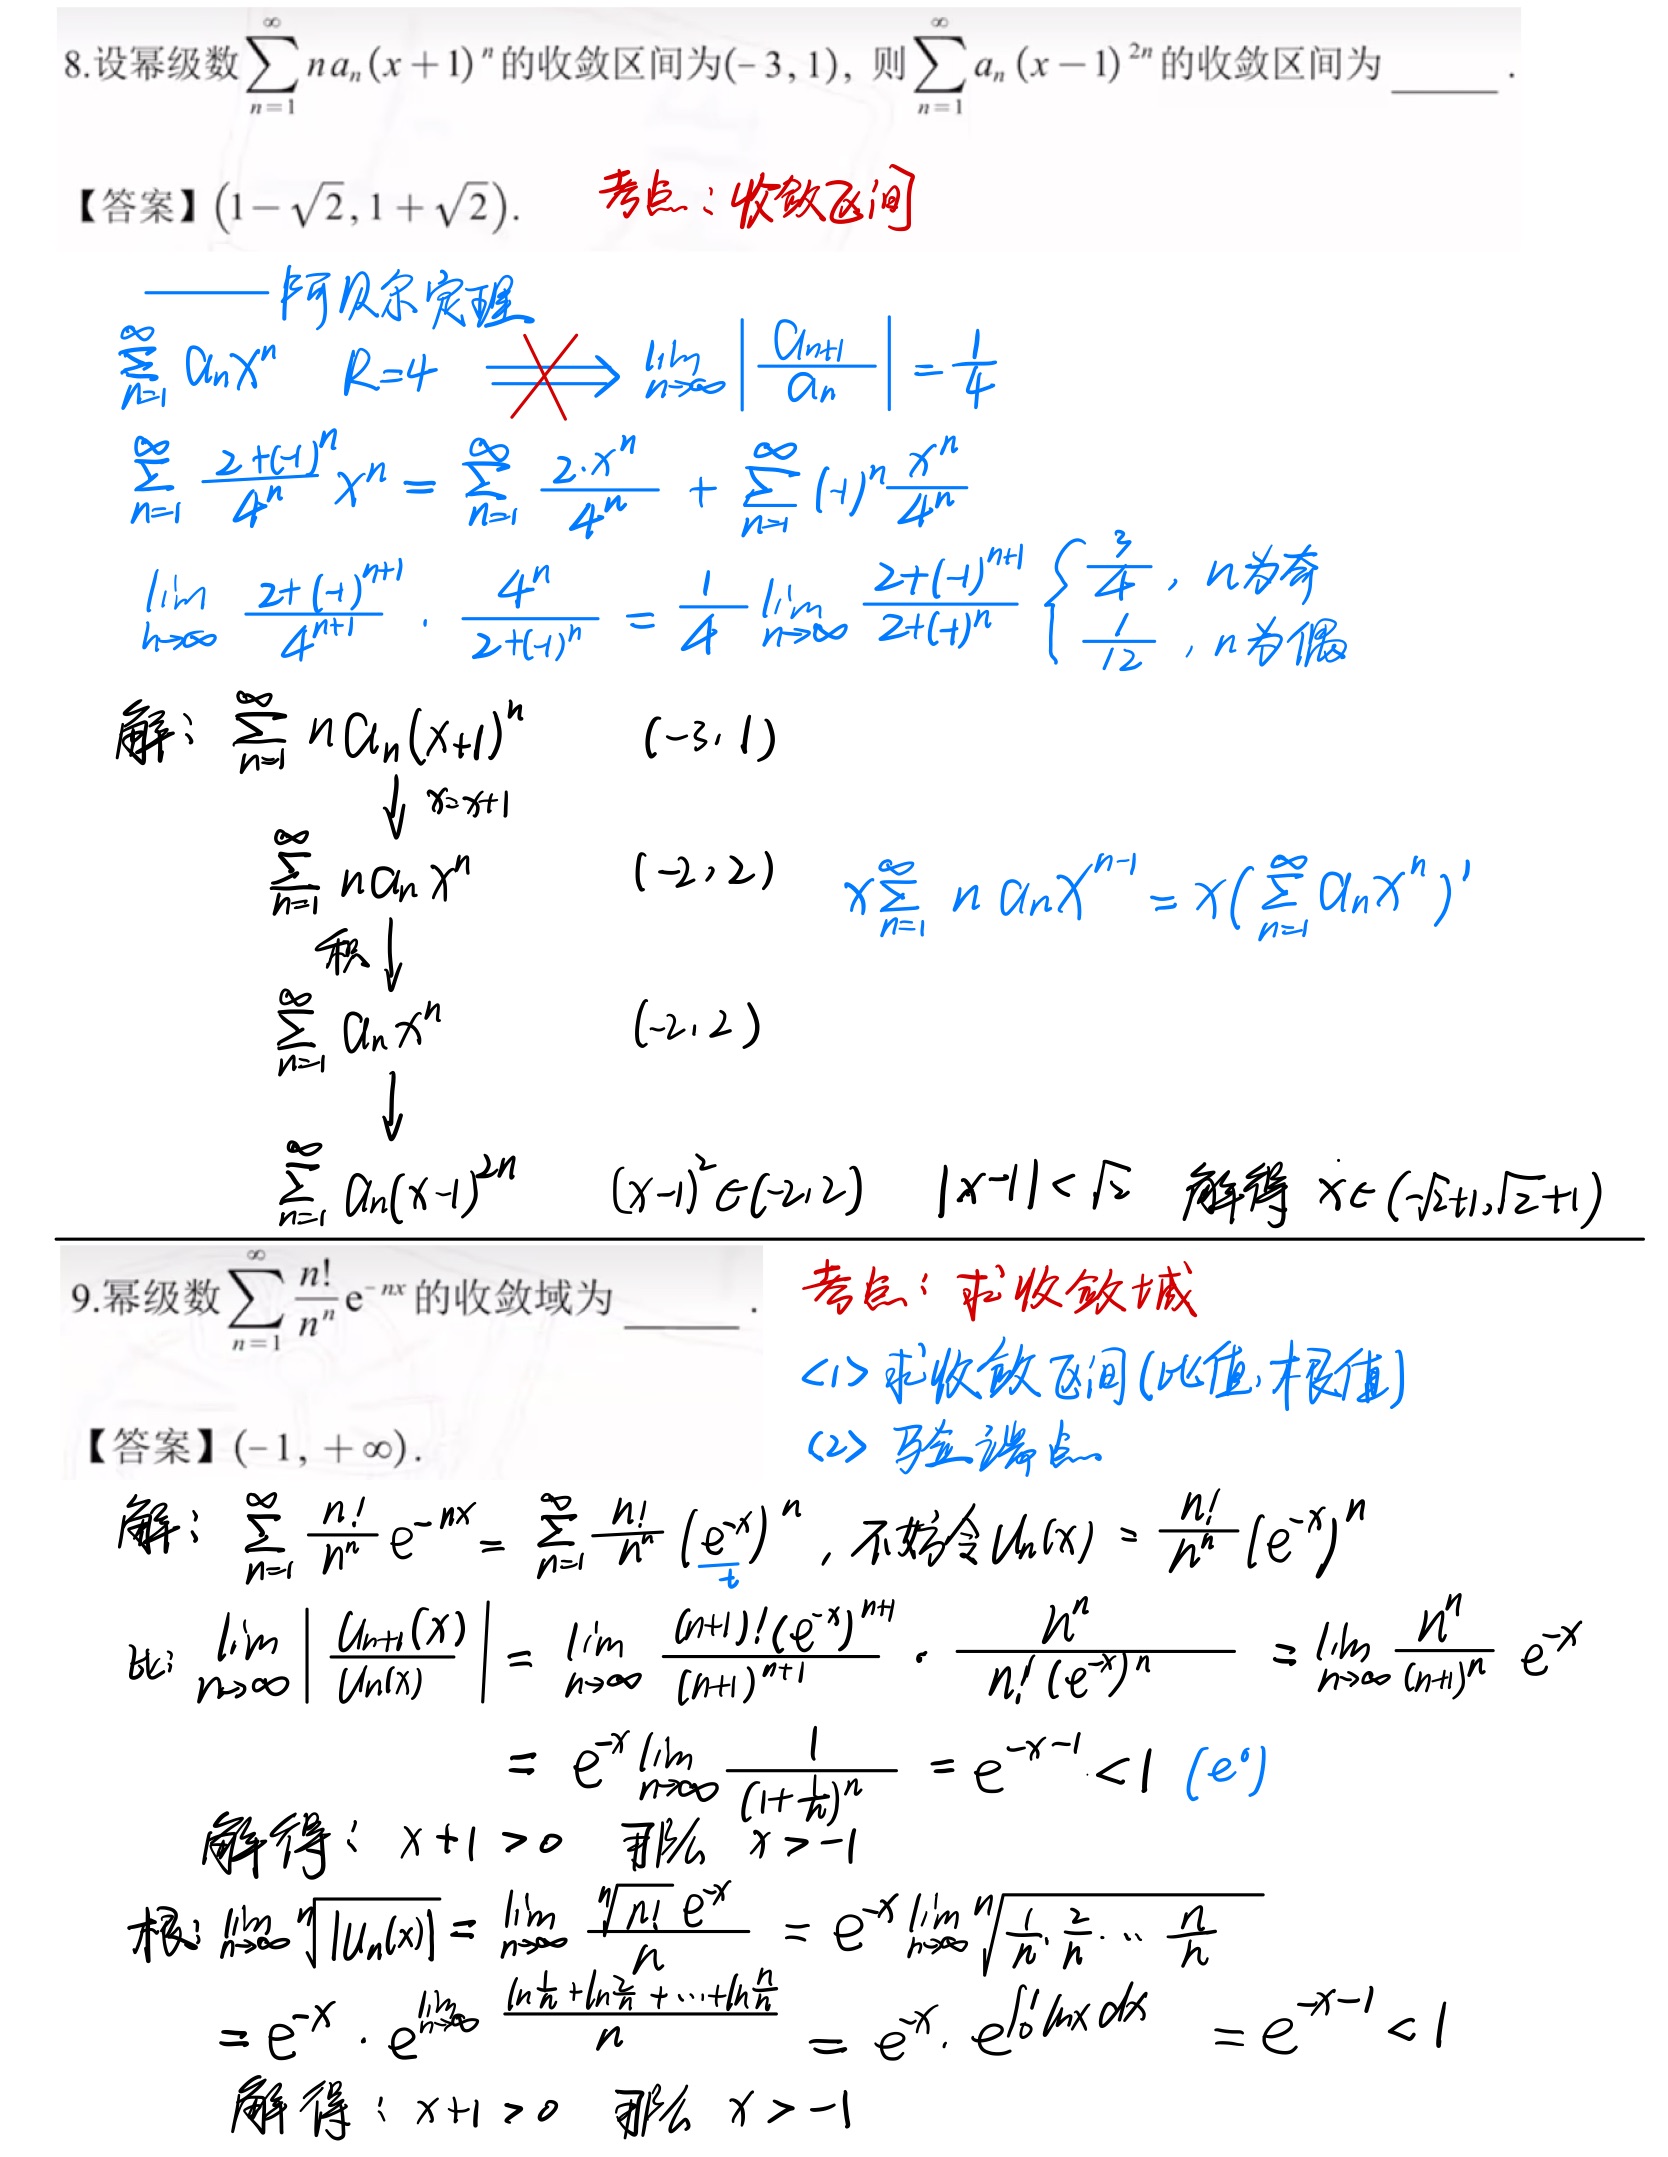 8.设幂级数 $\sum_{n=1}^{\infty} n a_n (x+1)^n$ 的收敛区间为(-3, 1), 则 $\sum_{n=1}^{\infty} a_n (x-1)^{2n}$ 的收敛区间为 ______ .
【答案】$(1-\sqrt{2}, 1+\sqrt{2})$. 考点：收敛区间
——阿贝尔定理
$\sum_{n=1}^{\infty} a_n x^n$ R=4 $\not\Rightarrow$ $\lim_{n\to\infty} \left|\frac{a_{n+1}}{a_n}\right| = \frac{1}{4}$
$\sum_{n=1}^{\infty} \frac{2+(-1)^n}{4^n} x^n = \sum_{n=1}^{\infty} \frac{2 \cdot x^n}{4^n} + \sum_{n=1}^{\infty} (-1)^n \frac{x^n}{4^n}$
$\lim_{n\to\infty} \frac{2+(-1)^{n+1}}{4^{n+1}} \cdot \frac{4^n}{2+(-1)^n} = \frac{1}{4} \lim_{n\to\infty} \frac{2+(-1)^{n+1}}{2+(-1)^n} \begin{cases} \frac{3}{4}, n为奇 \\ \frac{1}{12}, n为偶 \end{cases}$
解: $\sum_{n=1}^{\infty} n a_n (x+1)^n$ (-3, 1)
↓ x=x+1
$\sum_{n=1}^{\infty} n a_n x^n$ (-2, 2) $x\sum_{n=1}^{\infty} n a_n x^{n-1} = x(\sum_{n=1}^{\infty} a_n x^n)'$
积 ↓
$\sum_{n=1}^{\infty} a_n x^n$ (-2, 2)
↓
$\sum_{n=1}^{\infty} a_n (x-1)^{2n}$ $(x-1)^2 \in (-2, 2)$ $|x-1| < \sqrt{2}$ 解得 $x \in (-\sqrt{2}+1, \sqrt{2}+1)$
9.幂级数 $\sum_{n=1}^{\infty} \frac{n!}{n^n} e^{-nx}$ 的收敛域为 ______ . 考点：求收敛域
<1> 求收敛区间(比值,根值)
【答案】$(-1, +\infty)$. <2> 验端点
解: $\sum_{n=1}^{\infty} \frac{n!}{n^n} e^{-nx} = \sum_{n=1}^{\infty} \frac{n!}{n^n} (\underset{t}{\underline{e^{-x}}})^n$, 不妨令 $U_n(x) = \frac{n!}{n^n} (e^{-x})^n$
比: $\lim_{n\to\infty} \left|\frac{U_{n+1}(x)}{U_n(x)}\right| = \lim_{n\to\infty} \frac{(n+1)!(e^{-x})^{n+1}}{(n+1)^{n+1}} \cdot \frac{n^n}{n!(e^{-x})^n} = \lim_{n\to\infty} \frac{n^n}{(n+1)^n} e^{-x}$
$= e^{-x} \lim_{n\to\infty} \frac{1}{(1+\frac{1}{n})^n} = e^{-x-1} < 1$ $(e^0)$
解得: x+1 > 0 那么 x > -1
根: $\lim_{n\to\infty} \sqrt[n]{|U_n(x)|} = \lim_{n\to\infty} \frac{\sqrt[n]{n!} e^{-x}}{n} = e^{-x} \lim_{n\to\infty} \sqrt[n]{\frac{1}{n} \cdot \frac{2}{n} \cdots \frac{n}{n}}$
$= e^{-x} \cdot e^{\lim_{n\to\infty} \frac{\ln\frac{1}{n}+\ln\frac{2}{n}+\cdots+\ln\frac{n}{n}}{n}} = e^{-x} \cdot e^{\int_0^1 \ln x dx} = e^{-x-1} < 1$
解得: x+1 > 0 那么 x > -1